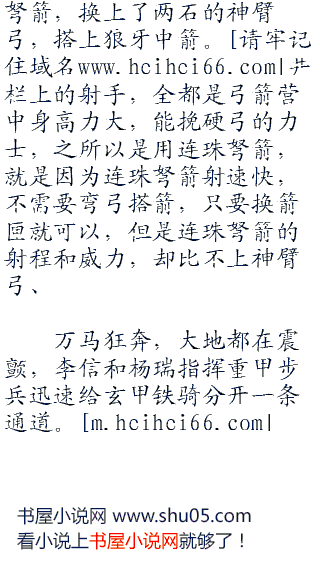 弩箭，换上了两石的神臂
弓，搭上狼牙中箭。[请牢记
住域名www.hcihci66.com|井
栏上的射手，全都是弓箭营
中身高力大，能挽硬弓的力
士，之所以是用连珠弩箭，
就是因为连珠弩箭射速快，
不需要弯弓搭箭，只要换箭
匣就可以，但是连珠弩箭的
射程和威力，却比不上神臂
弓、
万马狂奔，大地都在震
颤，李信和杨瑞指挥重甲步
兵迅速给玄甲铁骑分开一条
通道。[m.hcihci66.com|
书屋小说网 www.shu05.com
看小说上书屋小说网就够了！